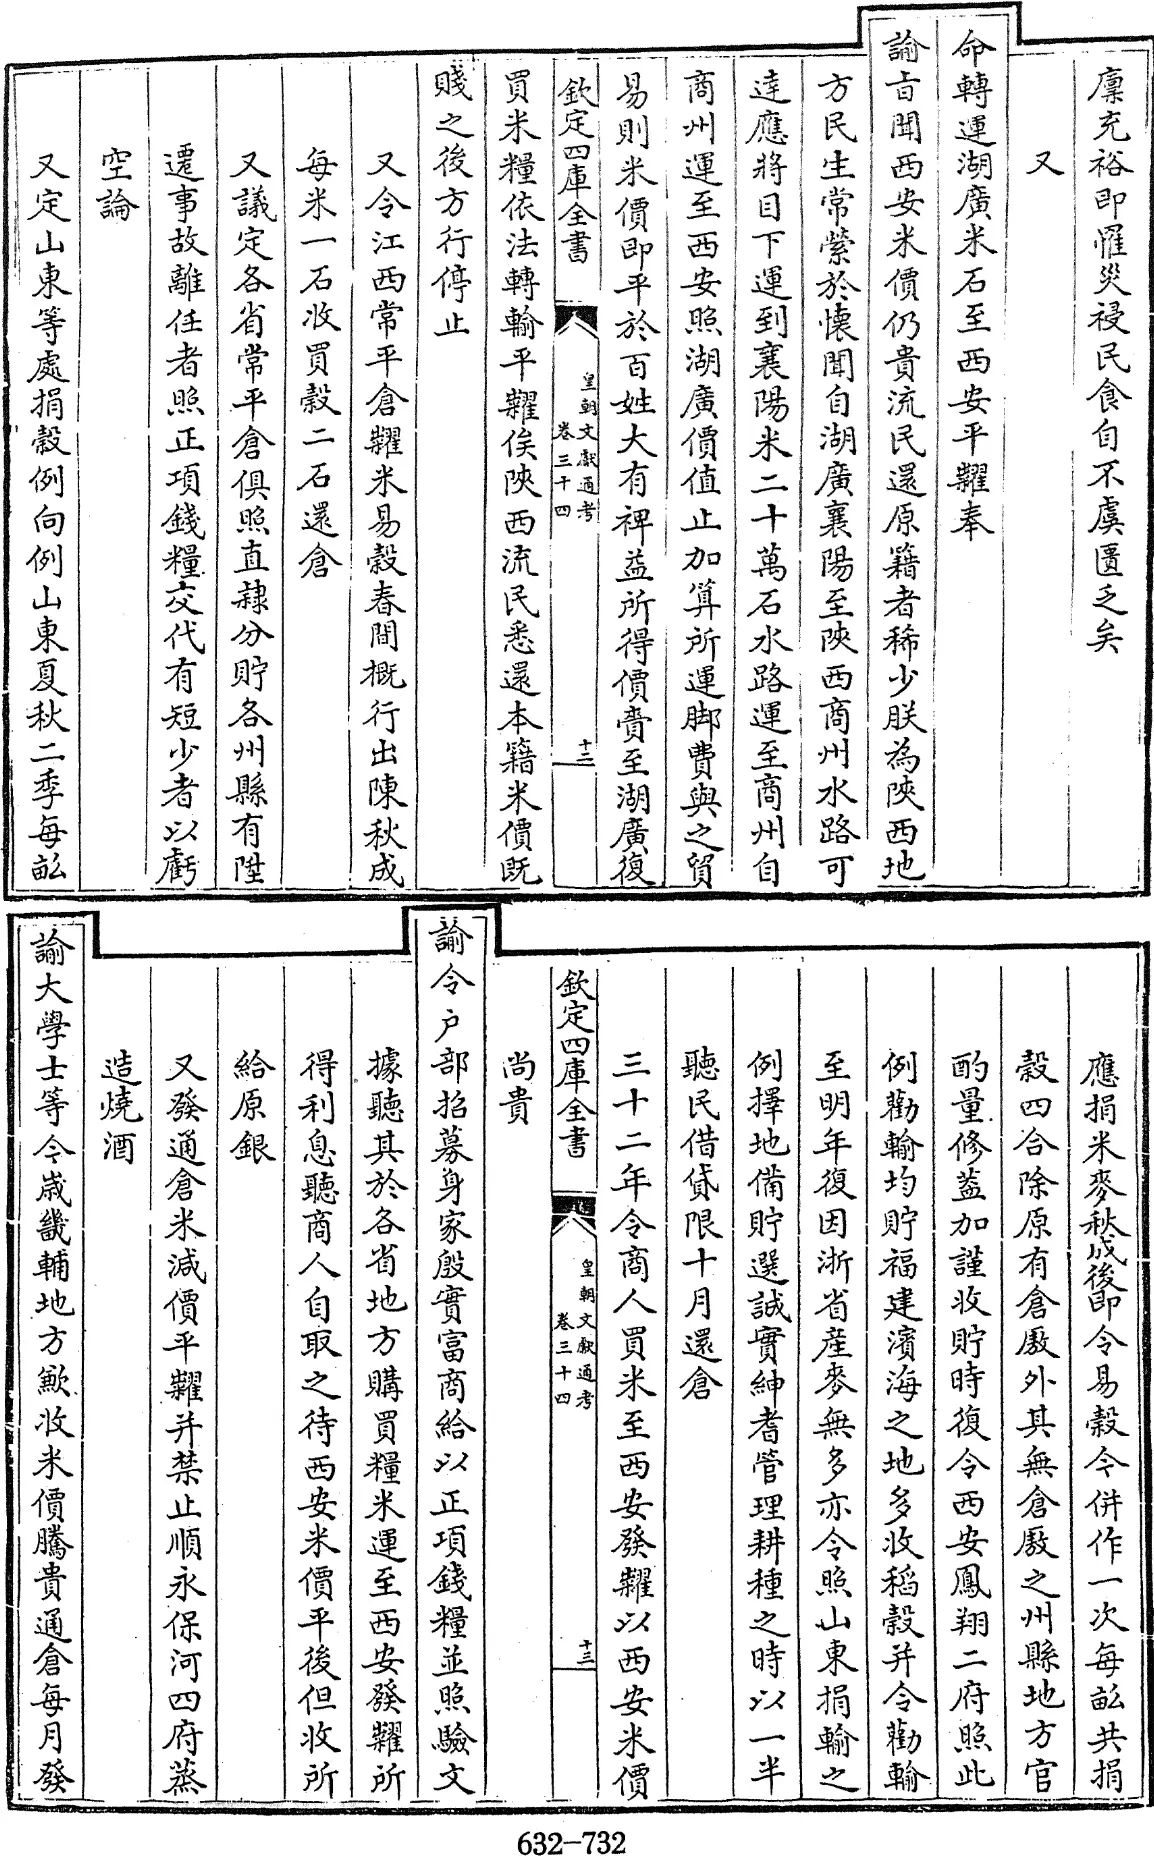 廪充裕即罹災祲民食自不虞匱乏矣
又
命轉運湖廣米石至西安平糶奉
諭旨聞西安米價仍貴流民還原籍者稀少朕為陝西地
方民生常縈於懷聞自湖廣襄陽至陝西商州水路可
達應將目下運到襄陽米二十萬石水路運至商州自
商州運至西安照湖廣價值止加算所運脚費與之貿
易則米價即平於百姓大有裨益所得價賫至湖廣復
欽定四庫全書
皇朝文獻通考
卷三十四
十二
買米糧依法轉輸平糶俟陝西流民悉還本籍米價既
賤之後方行停止
又令江西常平倉糶米易穀春間概行出陳秋成
每米一石收買穀二石還倉
又議定各省常平倉俱照直隷分貯各州縣有陞
遷事故離任者照正項錢糧交代有短少者以虧
空論
又定山東等處捐穀例向例山東夏秋二季每畝
應捐米麥秋成後即令易穀今併作一次每畝共捐
穀四合除原有倉廒外其無倉廒之州縣地方官
酌量修葢加謹收貯時復令西安鳳翔二府照此
例勸輸均貯福建濱海之地多收稻穀并令勸輸
至明年復因浙省産麥無多亦令照山東捐輸之
例擇地備貯選誠實紳耆管理耕種之時以一半
聽民借貸限十月還倉
三十二年令商人買米至西安發糶以西安米價
欽定四庫全書
皇朝文獻通考
卷三十四
十三
尚貴
諭令户部招募身家殷實富商給以正項錢糧並照驗文
據聽其於各省地方購買糧米運至西安發糶所
得利息聽商人自取之待西安米價平後但收所
給原銀
又發通倉米減價平糶并禁止順永保河四府蒸
造燒酒
諭大學士等今歲畿輔地方歉收米價騰貴通倉每月發
632-732